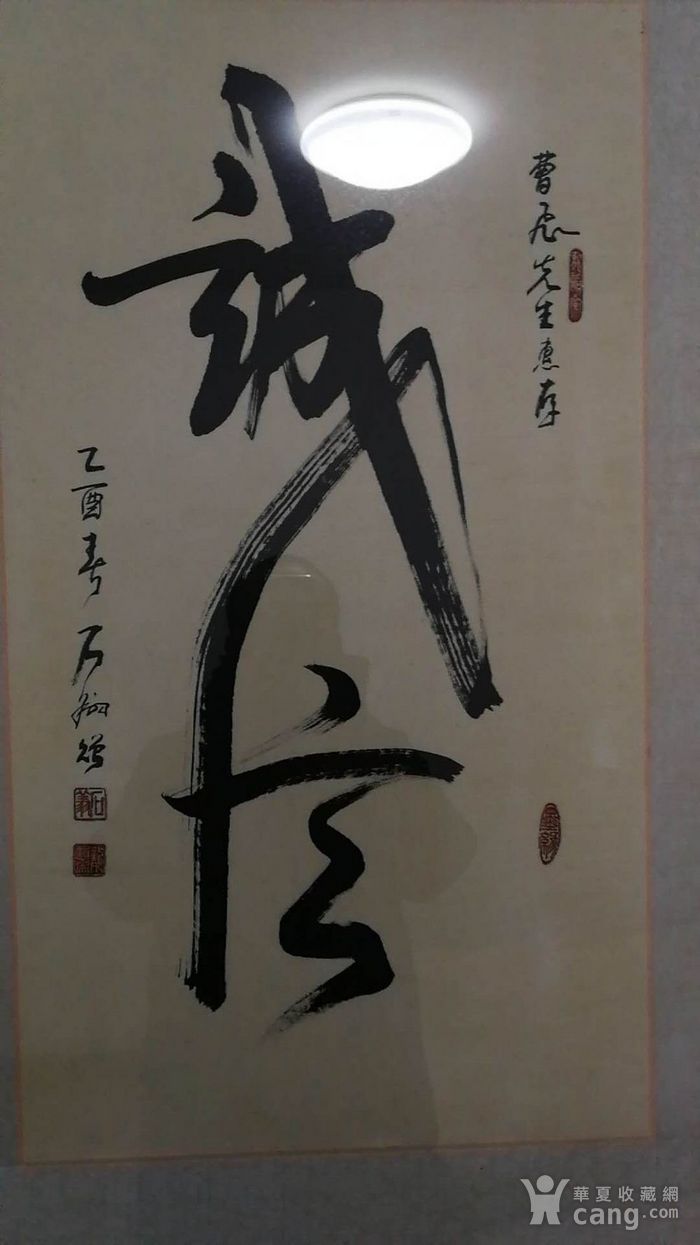 曹虎先生惠存
誠信
乙酉春 石翔
華夏收藏網
cang.com